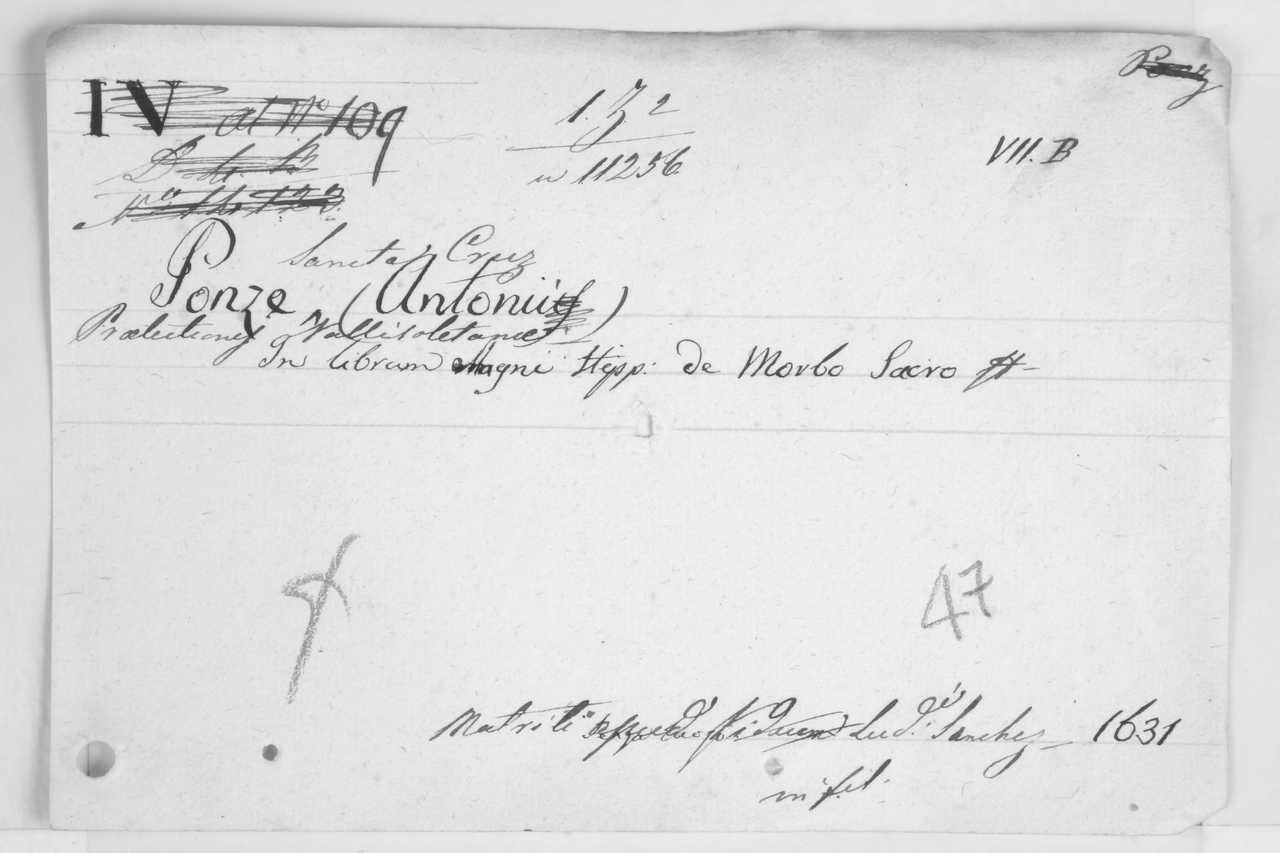 Ponz
IV at No 109
1. Z 2
n 11256
VII. B
Sancta Cruz
Ponze (Antonii)
Prælectiones Vallisoletanæ
In librum Magni Hipp: de Morbo Sacro
47
Matriti Lud: Sanchez 1631
in fol.